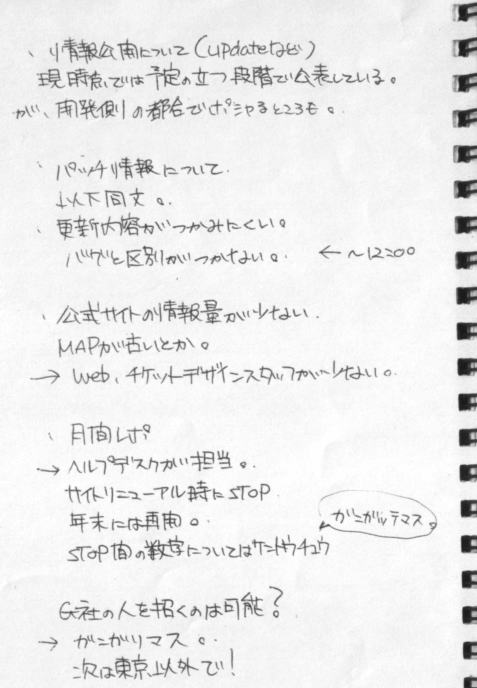 、情報公開について(updateなど)
現時点では予定の立つ段階で公表している。
が、開発側の都合でポシャるところも。
、パッチ情報について.
以下同文。
・更新内容がつかみにくい。
バグと区別がつかない。 ←~12:00
・公式サイトの情報量が少ない.
MAPが古いとか。
→ Web、チケットデザインスタッフが少ない。
・月間レポ
→ ヘルプデスクが担当。
サイトリニューアル時にSTOP
年末には再開。
STOP間の数字についてはケントウチュウ
がんがッテマス。
G社の人を招くのは可能?
→ がんがりマス。
次は東京以外で!